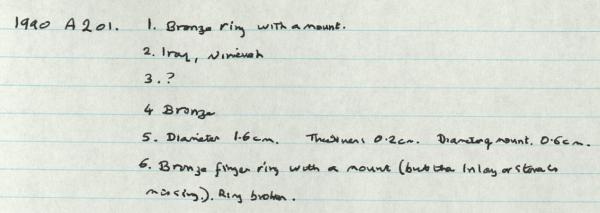 1990 A 201. 1. Bronze ring with a mount.
2. Iraq, Nineveh
3. ?
4 Bronze
5. Diameter 1.6cm. Thickness 0.2cm. Diam of mount. 0.6cm.
6. Bronze finger ring with a mount (but the inlay or stone is
missing). Ring broken.